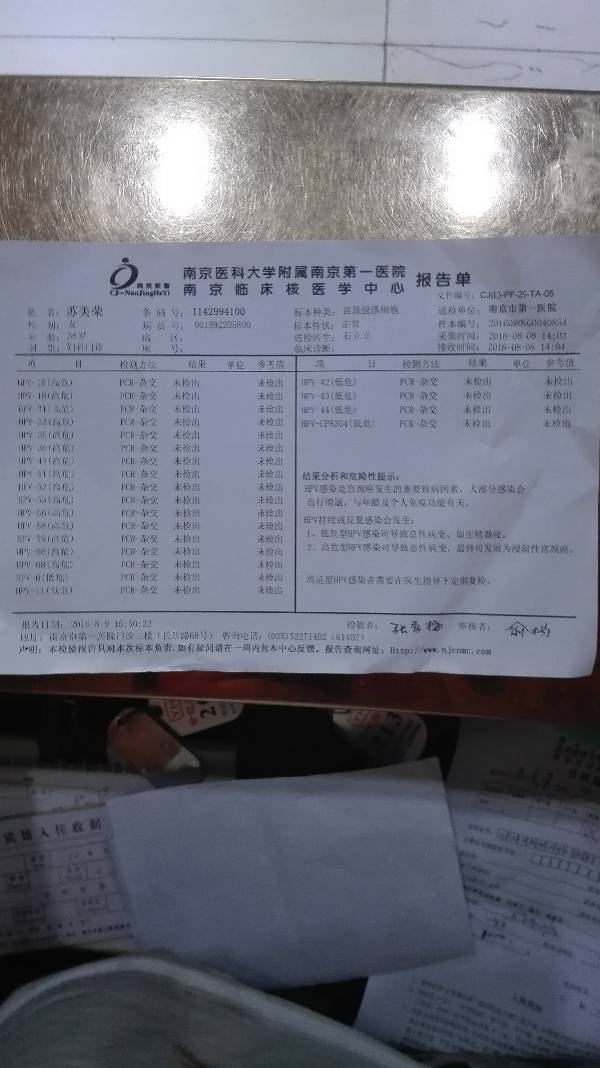 南京医科大学附属南京第一医院
南京临床核医学中心
报告单
CJ-NanJingHeYi
文件编号: CJ(L)-PF-25-TA-05
姓 名: 苏美荣 条 码 号: 1142994100 标本种类: 宫颈脱落细胞 送检单位: 南京市第一医院
性 别: 女 病 员 号: 001392205800 标本性状: 正常 样本编号: 20160809G0040854
年 龄: 38岁 病 区: 送检医生: 石立立 采集时间: 2016-08-08 14:03
科 室: 妇科门诊 床 号: 临床诊断: 接收时间: 2016-08-08 14:04
项 目 检测方法 结果 单位 参考值 项 目 检测方法 结果 单位 参考值
HPV-16(高危) PCR-杂交 未检出 未检出 HPV-42(低危) PCR-杂交 未检出 未检出
HPV-18(高危) PCR-杂交 未检出 未检出 HPV-43(低危) PCR-杂交 未检出 未检出
HPV-31(高危) PCR-杂交 未检出 未检出 HPV-44(低危) PCR-杂交 未检出 未检出
HPV-33(高危) PCR-杂交 未检出 未检出 HPV-CP8304(低危) PCR-杂交 未检出 未检出
HPV-35(高危) PCR-杂交 未检出 未检出
HPV-39(高危) PCR-杂交 未检出 未检出
HPV-45(高危) PCR-杂交 未检出 未检出
HPV-51(高危) PCR-杂交 未检出 未检出
HPV-52(高危) PCR-杂交 未检出 未检出
HPV-53(高危) PCR-杂交 未检出 未检出
HPV-56(高危) PCR-杂交 未检出 未检出
HPV-58(高危) PCR-杂交 未检出 未检出
HPV-59(高危) PCR-杂交 未检出 未检出
HPV-66(高危) PCR-杂交 未检出 未检出
HPV-68(高危) PCR-杂交 未检出 未检出
HPV-6(低危) PCR-杂交 未检出 未检出
HPV-11(低危) PCR-杂交 未检出 未检出
结果分析和危险性提示:
HPV感染是宫颈癌发生的重要致病因素，大部分感染会
自行消退，与年龄及个人免疫功能有关。
HPV持续或反复感染会发生:
1、低危型HPV感染可导致良性病变，如生殖器疣。
2、高危型HPV感染可导致恶性病变，最终可发展为浸润性宫颈癌。
高危型HPV感染者需要在医生指导下定期复检。
报告日期: 2016-8-9 16:50:22 检验者: 审核者:
地址: 南京市第一医院门诊二楼（长乐路68号） 咨询电话: (025)52271402 (61402)
声明: 本检验报告只对本次标本负责, 如有疑问请在一周内向本中心反馈。报告查询网址: Http://www.njcnmc.com
宾馆入住收据